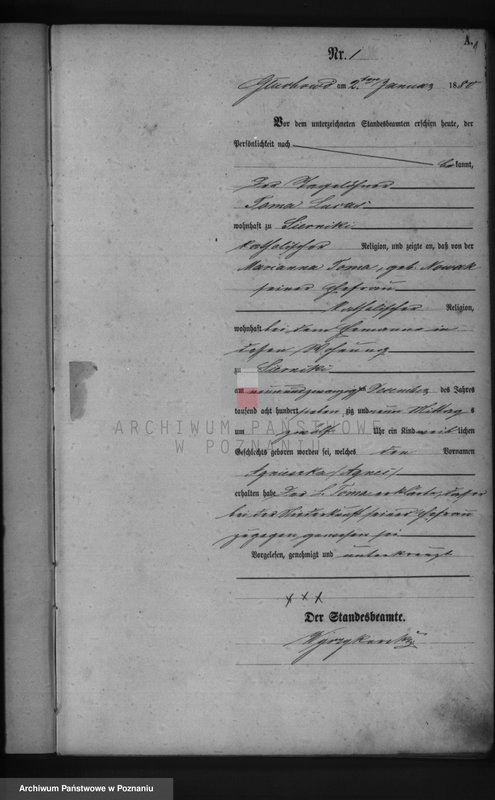 A.
Nr. 1
Gluchowo am 2. ten Januar 1880
Vor dem unterzeichneten Standesbeamten erschien heute, der
Persönlichkeit nach
bekannt,
Der Tagelöhner
Toma
wohnhaft zu Sierniki
katholischer Religion, und zeigte an, daß von der
Marianna Toma, geb. Nowak
seiner Ehefrau
katholischer Religion,
wohnhaft bei dem Ehemanne in
dessen Wohnung
zu Sierniki
am neunundzwanzigst Dezember des Jahres
tausend acht hundert sieben zig und neun Mittags
um zwölf Uhr ein Kind weiblichen
Geschlechts geboren worden sei, welches den Vornamen
Agnieszka (Agnes)
erhalten habe. Der L. Toma erklärte, daß er
bei der Niederkunft seiner Ehefrau
zugegen gewesen sei
Vorgelesen, genehmigt und unterkreuzt
x x x
Der Standesbeamte.
ARCHIWUM PAŃSTWOWE
W POZNANIU
Archiwum Państwowe w Poznaniu